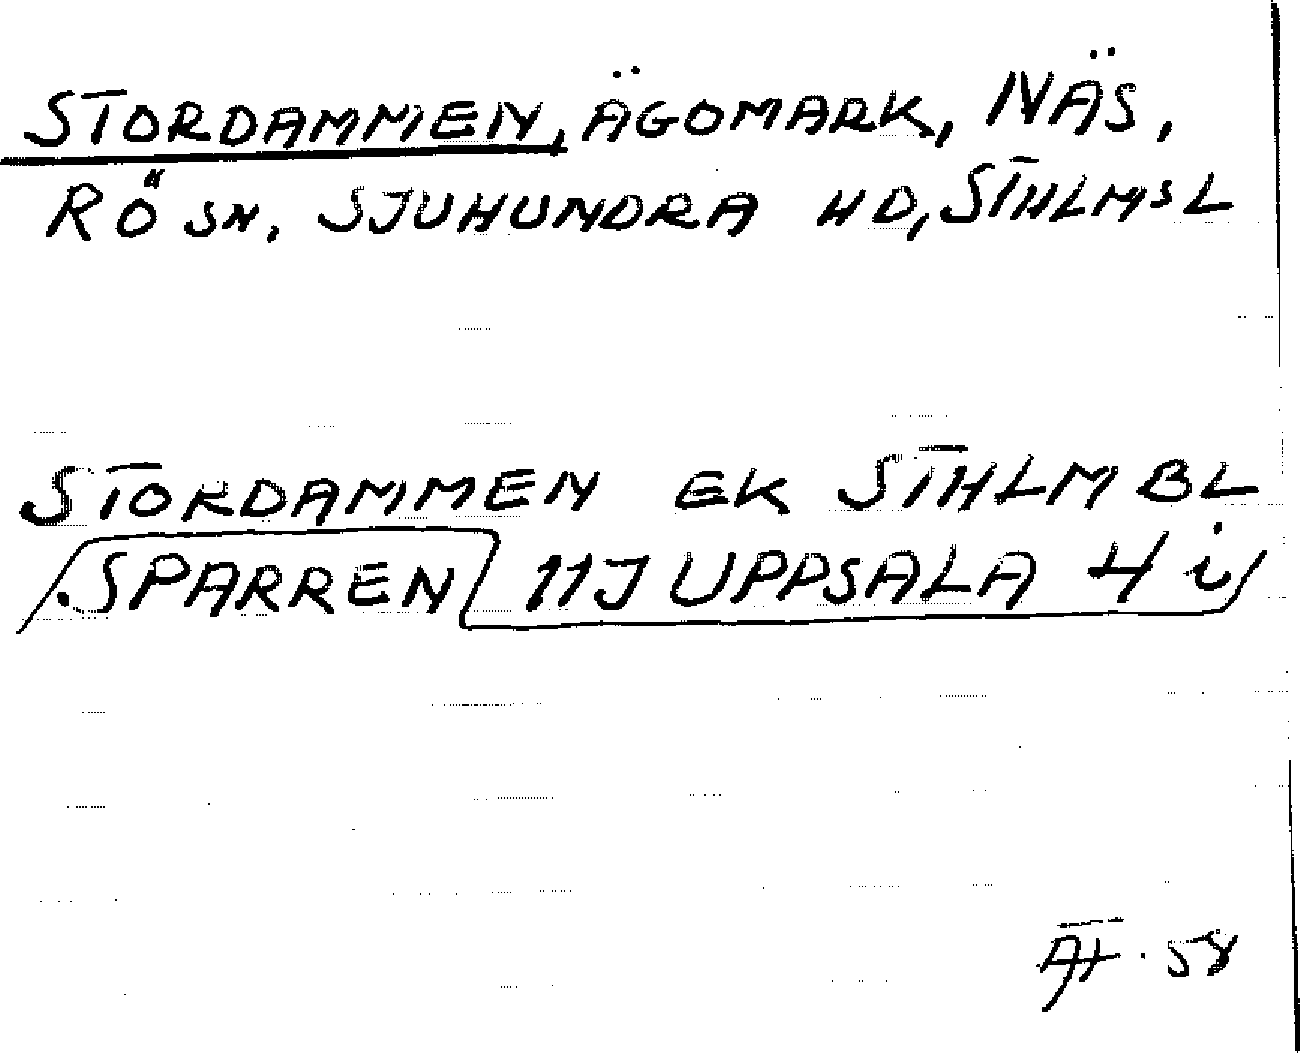 STORDAMMEN, ÄGOMARK, NÄS,
RÖ SN, SJUHUNDRA HD, STHLMS L
STORDAMMEN EK STHLM BL
SPARREN 11J UPPSALA 4 i
58